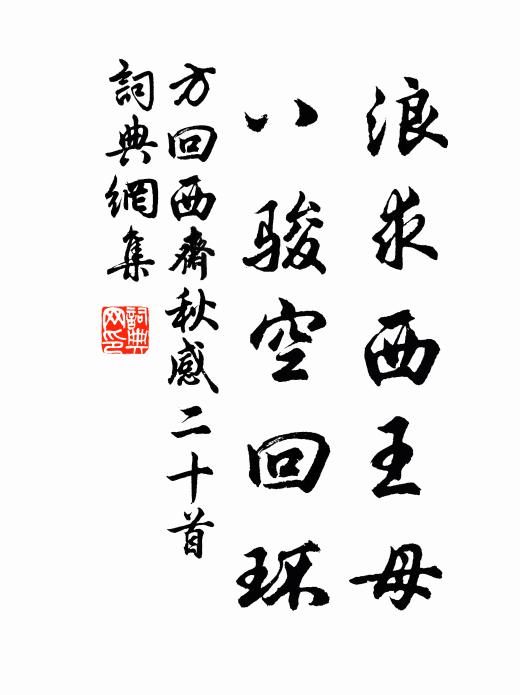 浪求西王母
八骏空回环
方回西齋秋感二十首
詞典網集
詞典网印